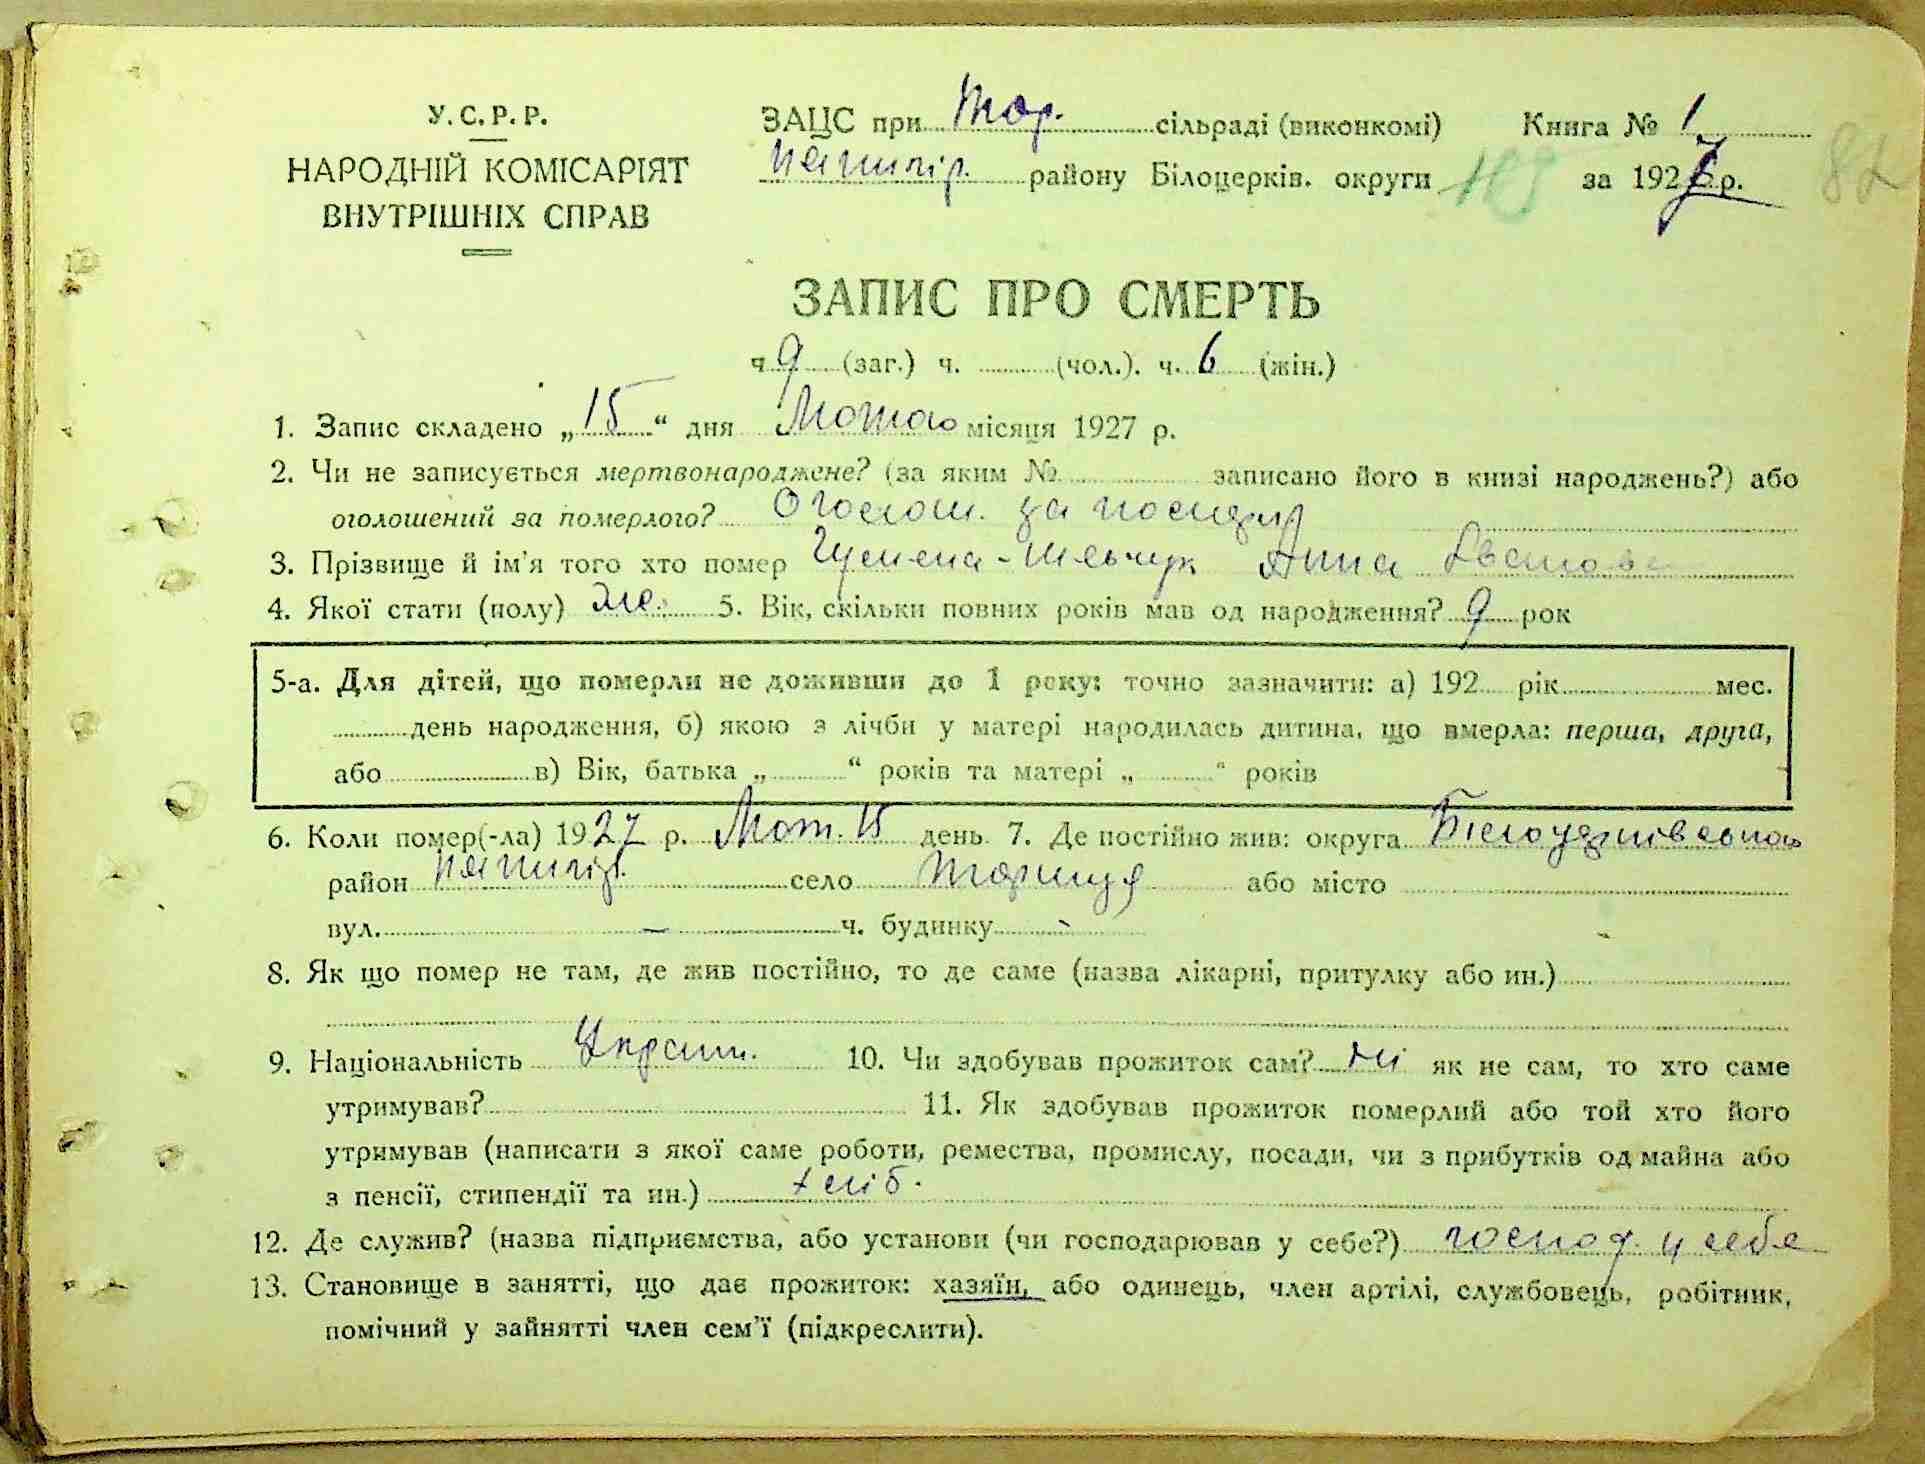 У. С. Р. Р.
НАРОДНІЙ КОМІСАРІЯТ
ВНУТРІШНІХ СПРАВ
ЗАЦС при Тор. сільраді (виконкомі) Книга № 1
Пятигір. району Білоцерків. округи 1927 р.
82
ЗАПИС ПРО СМЕРТЬ
ч. 9 (заг.) ч. (чол.). ч. 6 (жін.)
1. Запис складено „15“ дня місяця 1927 р.
2. Чи не записується мертвонароджене? (за яким № записано його в книзі народжень?) або
оголошений за померлого? за
3. Прізвище й ім'я того хто помер Анна
4. Якої стати (полу) жіе. 5. Вік, скільки повних років мав од народження? 9 рок
5-а. Для дітей, що померли не доживши до 1 року: точно зазначити: а) 192 рік мес.
день народження, б) якою з лічби у матері народилась дитина, що вмерла: перша, друга,
або в) Вік, батька „ “ років та матері „ “ років
6. Коли помер(-ла) 1927 р. 15 день 7. Де постійно жив: округа Білоцерківська
район Пятигір. село Ториця або місто
вул. — ч. будинку -
8. Як що помер не там, де жив постійно, то де саме (назва лікарні, притулку або ин.)
9. Національність Украин. 10. Чи здобував прожиток сам? ні як не сам, то хто саме
утримував? 11. Як здобував прожиток померлий або той хто його
утримував (написати з якої саме роботи, ремества, промислу, посади, чи з прибутків од майна або
з пенсії, стипендії та ин.) хліб.
12. Де служив? (назва підприємства, або установи (чи господарював у себе?) господ. у себе
13. Становище в занятті, що дає прожиток: хазяїн, або одинець, член артілі, службовець, робітник,
помічний у зайнятті член сем'ї (підкреслити).